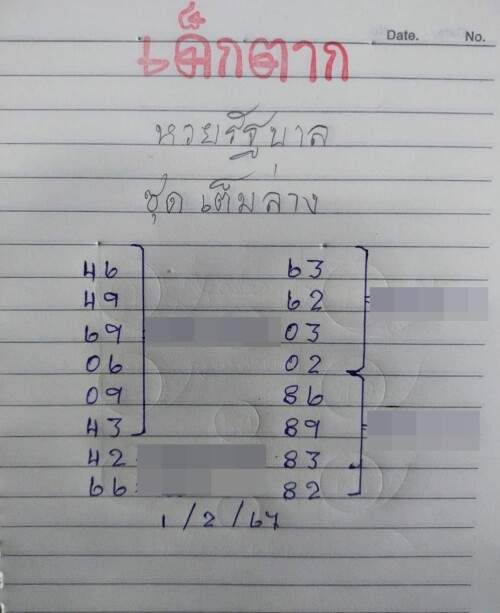 Date. No.
เด็กตาก
หวยรัฐบาล
ชุด เต็มล่าง
46 63
49 62
69 03
06 02
09 86
43 89
42 83
66 82
1/2/67